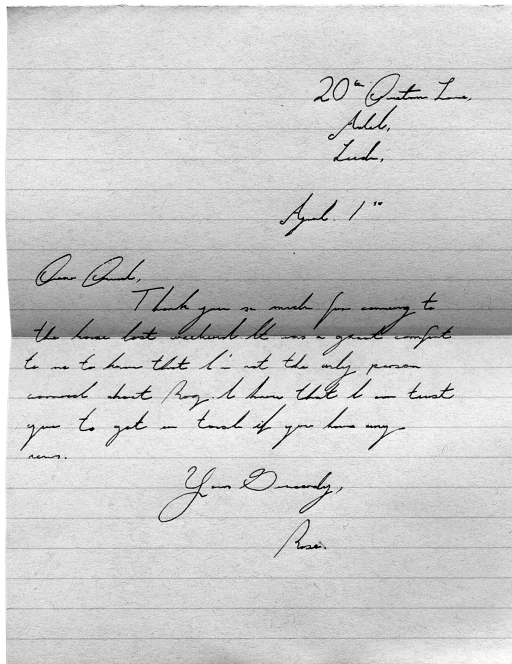 20
Lane,
Adel,
Leeds,
April. 1st
Dear
Thank you so much for coming to
the house last weekend. It was a great comfort
to me to know that I'm not the only person
concerned about Roy. I know that I can trust
you to get in touch if you have any
news.
Yours Sincerely,
Rose.